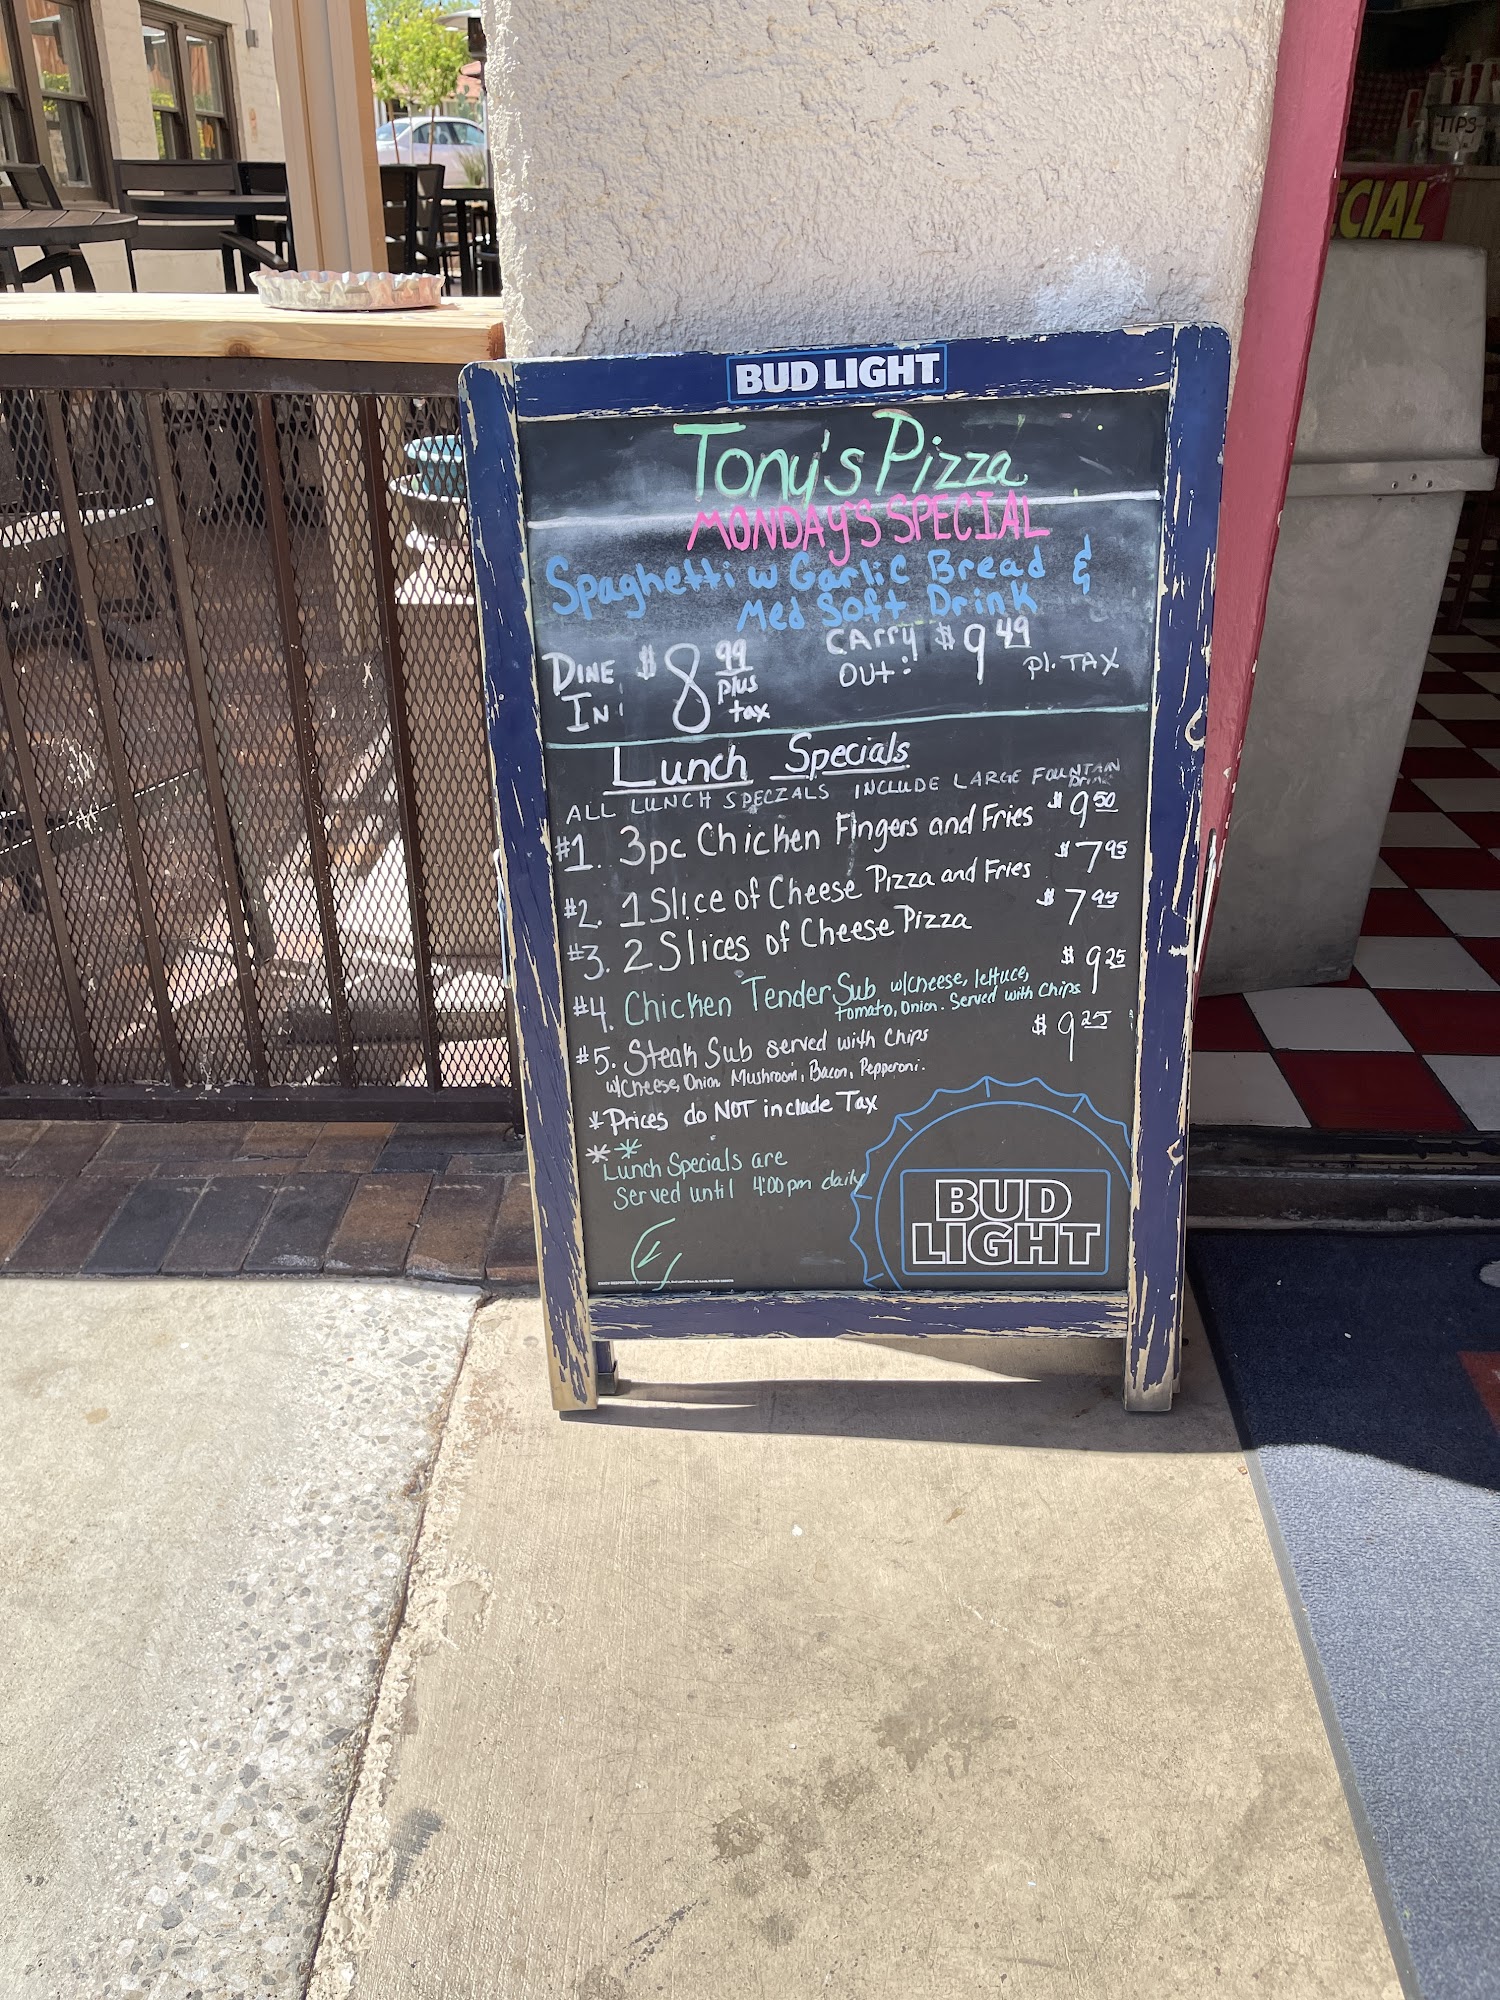 TIPS
CIAL
BUD LIGHT
Tony's Pizza
MONDAY'S SPECIAL
Spaghetti w Garlic Bread &
Med Soft Drink
DINE IN: $8.99 plus tax
CARRY OUT: $9.49 pl. TAX
Lunch Specials
ALL LUNCH SPECIALS INCLUDE LARGE FOUNTAIN DRINK
#1. 3pc Chicken Fingers and Fries $9.50
#2. 1 Slice of Cheese Pizza and Fries $7.95
#3. 2 Slices of Cheese Pizza $7.95
#4. Chicken Tender Sub w/cheese, lettuce, $9.25
tomato, Onion. Served with Chips
#5. Steak Sub served with Chips $9.25
w/Cheese, Onion Mushroom, Bacon, Pepperoni.
* Prices do NOT include Tax
* *
Lunch Specials are
Served until 4:00pm daily
BUD
LIGHT